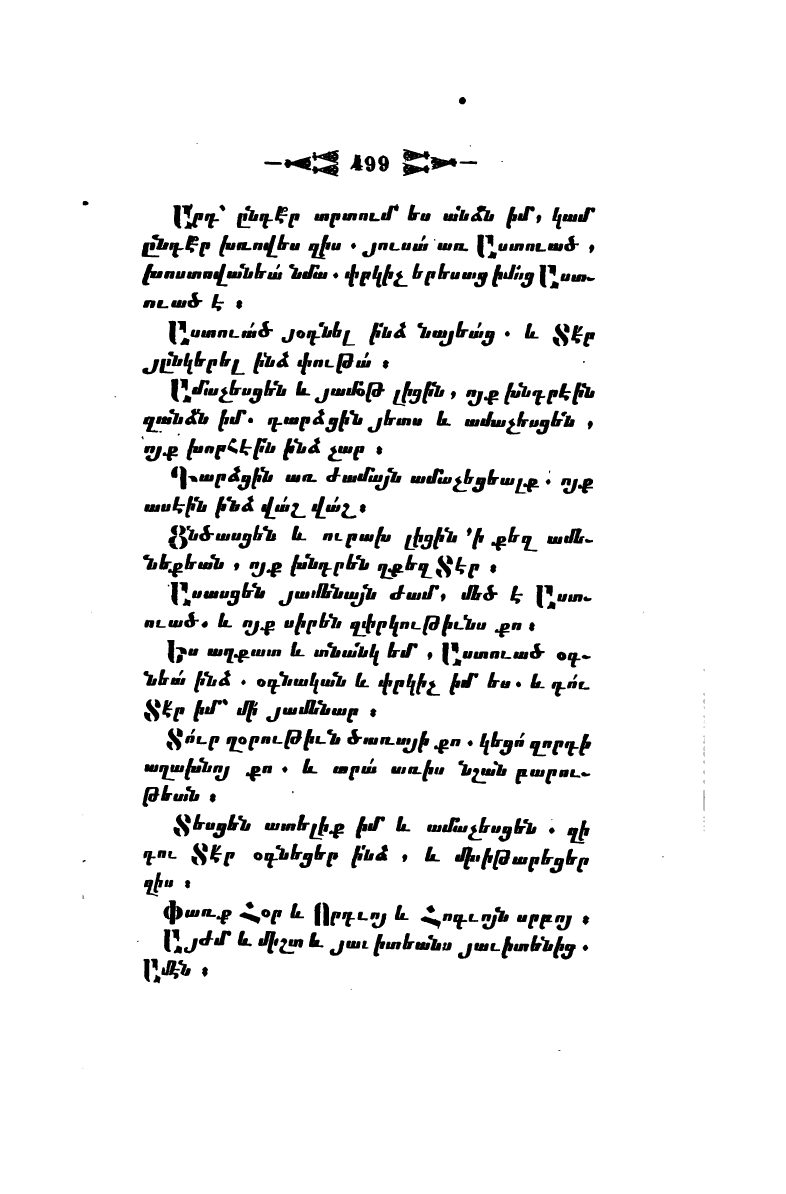 499
Արդ՝ ընդէ՞ր տրտում ես անձն իմ, կամ
ընդէ՞ր խռովես զիս. յուսա՛ առ Աստուած,
խոստովանեա՛ նմա. փրկիչ երեսաց իմոց Աստ-
ուած է։
Աստուած յօգնել ինձ նայեա՛ց. և Տէր
յընկերել ինձ փութա՛։
Ամաչեսցեն և յամօթ լիցին, ոյք խնդրէին
զանձն իմ. դարձցին յետս և ամաչեսցեն,
ոյք խորհէին ինձ չար։
Դարձցին առ ժամայն ամաչեցեալք. ոյք
ասէին ինձ վա՛շ վա՛շ։
Ցնծասցեն և ուրախ լիցին ՚ի քեզ ամե-
նեքեան, ոյք խնդրեն զքեզ Տէր։
Ասասցեն յամենայն ժամ, մեծ է Աստ-
ուած. և ոյք սիրեն զփրկութիւնս քո։
Ես աղքատ և տնանկ եմ, Աստուած օգ-
նեա՛ ինձ. օգնական և փրկիչ իմ ես. և դու
Տէր իմ՝ մի՛ յամենար։
Տո՛ւր զօրութիւն ծառայի քո. կեցո՛ զորդի
աղախնոյ քո. և արա՛ առիս նշան բարու-
թեան։
Տեսցեն ատելիք իմ և ամաչեսցեն. զի
դու Տէր օգնեցեր ինձ, և մխիթարեցեր
զիս։
Փառք Հօր և Որդւոյ և Հոգւոյն սրբոյ։
Այժմ և միշտ և յաւիտեանս յաւիտենից.
Ամէն։